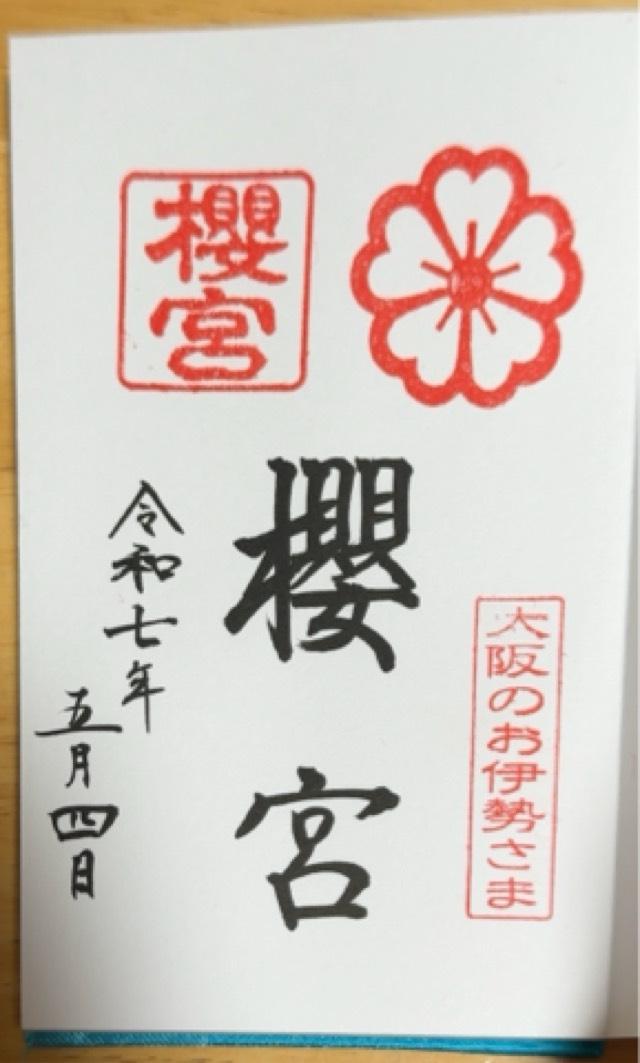 大阪のお伊勢さま
櫻宮
櫻宮
令和七年
五月四日